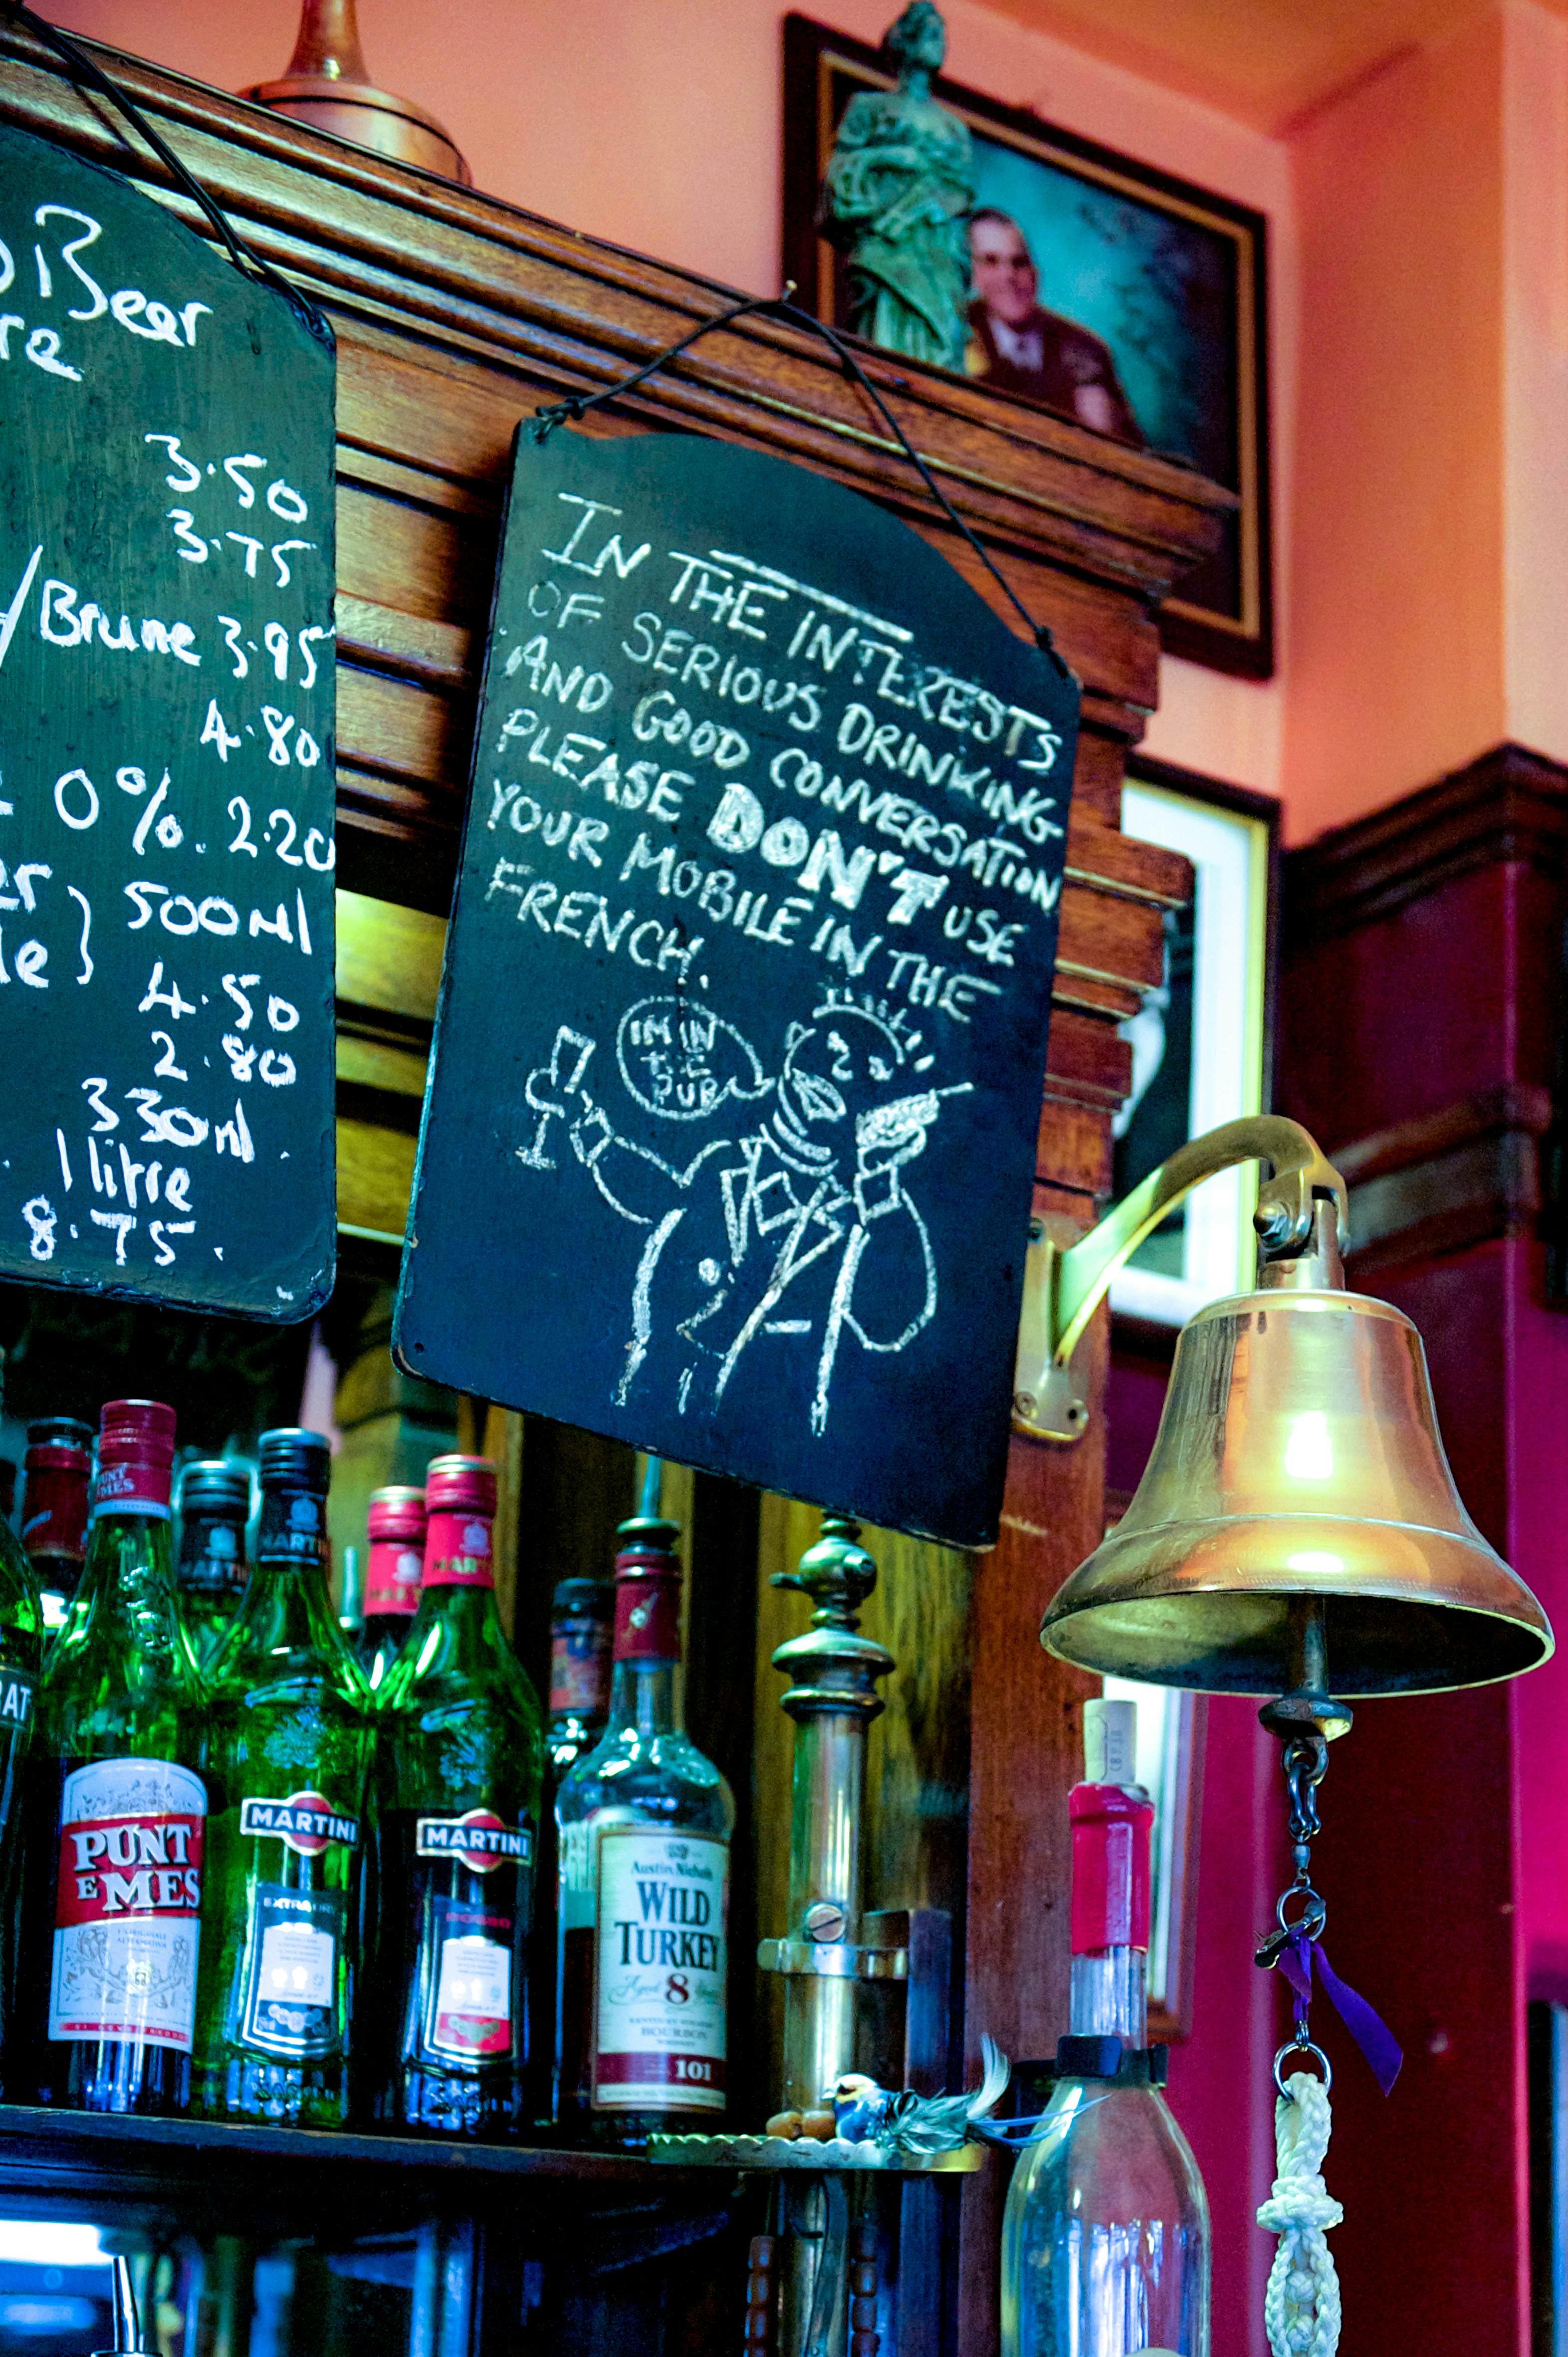 Beer
3.50
3.75
/Brune 3.95
4.80
0%. 2.20
500ml
4.50
2.80
330ml.
1 litre
8.75.
IN THE INTERESTS
OF SERIOUS DRINKING
AND GOOD CONVERSATION
PLEASE DON'T USE
YOUR MOBILE IN THE
FRENCH.
IM IN
THE
PUB
PUNT
E MES
MARTINI
MARTINI
EXTRA DRY
PUNT
E MES
MARTINI
MARTINI
Austin Nichols
WILD
TURKEY
Aged 8 Years
KENTUCKY STRAIGHT
BOURBON
WHISKEY
101